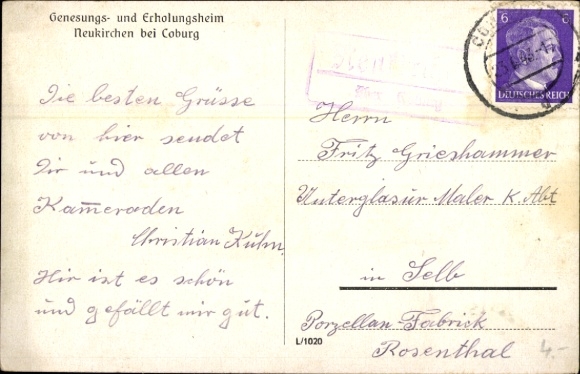 Genesungs- und Erholungsheim
Neukirchen bei Coburg
Die besten Grüsse
von hier sendet
Dir und allen
Kam̅eraden
Christian Kühn.
Hir ist es schön
und gefällt mir gut.
L/1020
6 6
DEUTSCHES REICH
Herrn
Fritz Grieshammer
Unterglasur Maler K. Abt
in Selb
Porzellan-Fabrick
Rosenthal
4.-